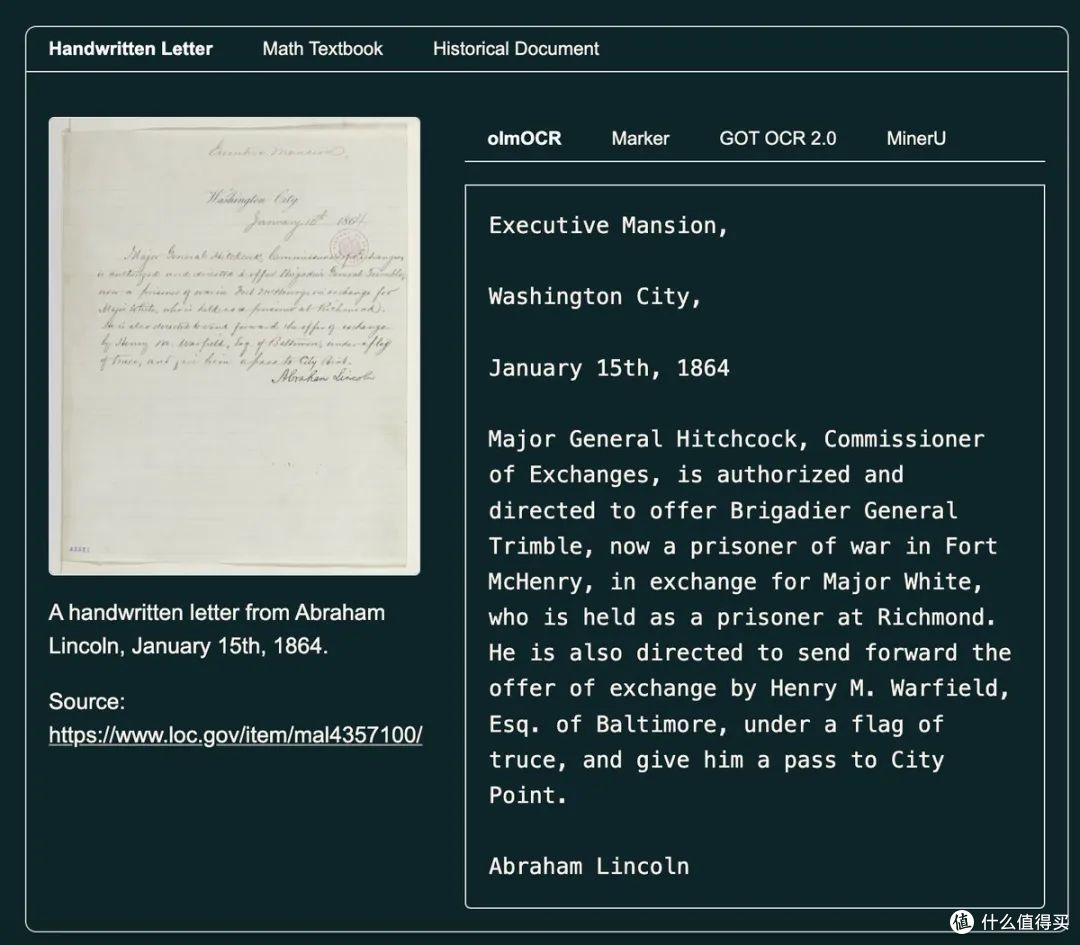 Handwritten Letter
Math Textbook
Historical Document
Executive Mansion,
Washington City
January 15th 1864
Major General Hitchcock, Commissioner of Exchanges
is authorized and directed to offer Brigadier General Trimble,
now a prisoner of war in Fort McHenry, in exchange for
Major White, who is held as a prisoner at Richmond.
He is also directed to send forward the offer of exchange
by Henry M. Warfield, Esq. of Baltimore, under a flag
of truce, and give him a pass to City Point.
Abraham Lincoln
A handwritten letter from Abraham
Lincoln, January 15th, 1864.
Source:
https://www.loc.gov/item/mal4357100/
olmOCR
Marker
GOT OCR 2.0
MinerU
Executive Mansion,
Washington City,
January 15th, 1864
Major General Hitchcock, Commissioner
of Exchanges, is authorized and
directed to offer Brigadier General
Trimble, now a prisoner of war in Fort
McHenry, in exchange for Major White,
who is held as a prisoner at Richmond.
He is also directed to send forward the
offer of exchange by Henry M. Warfield,
Esq. of Baltimore, under a flag of
truce, and give him a pass to City
Point.
Abraham Lincoln
值 什么值得买